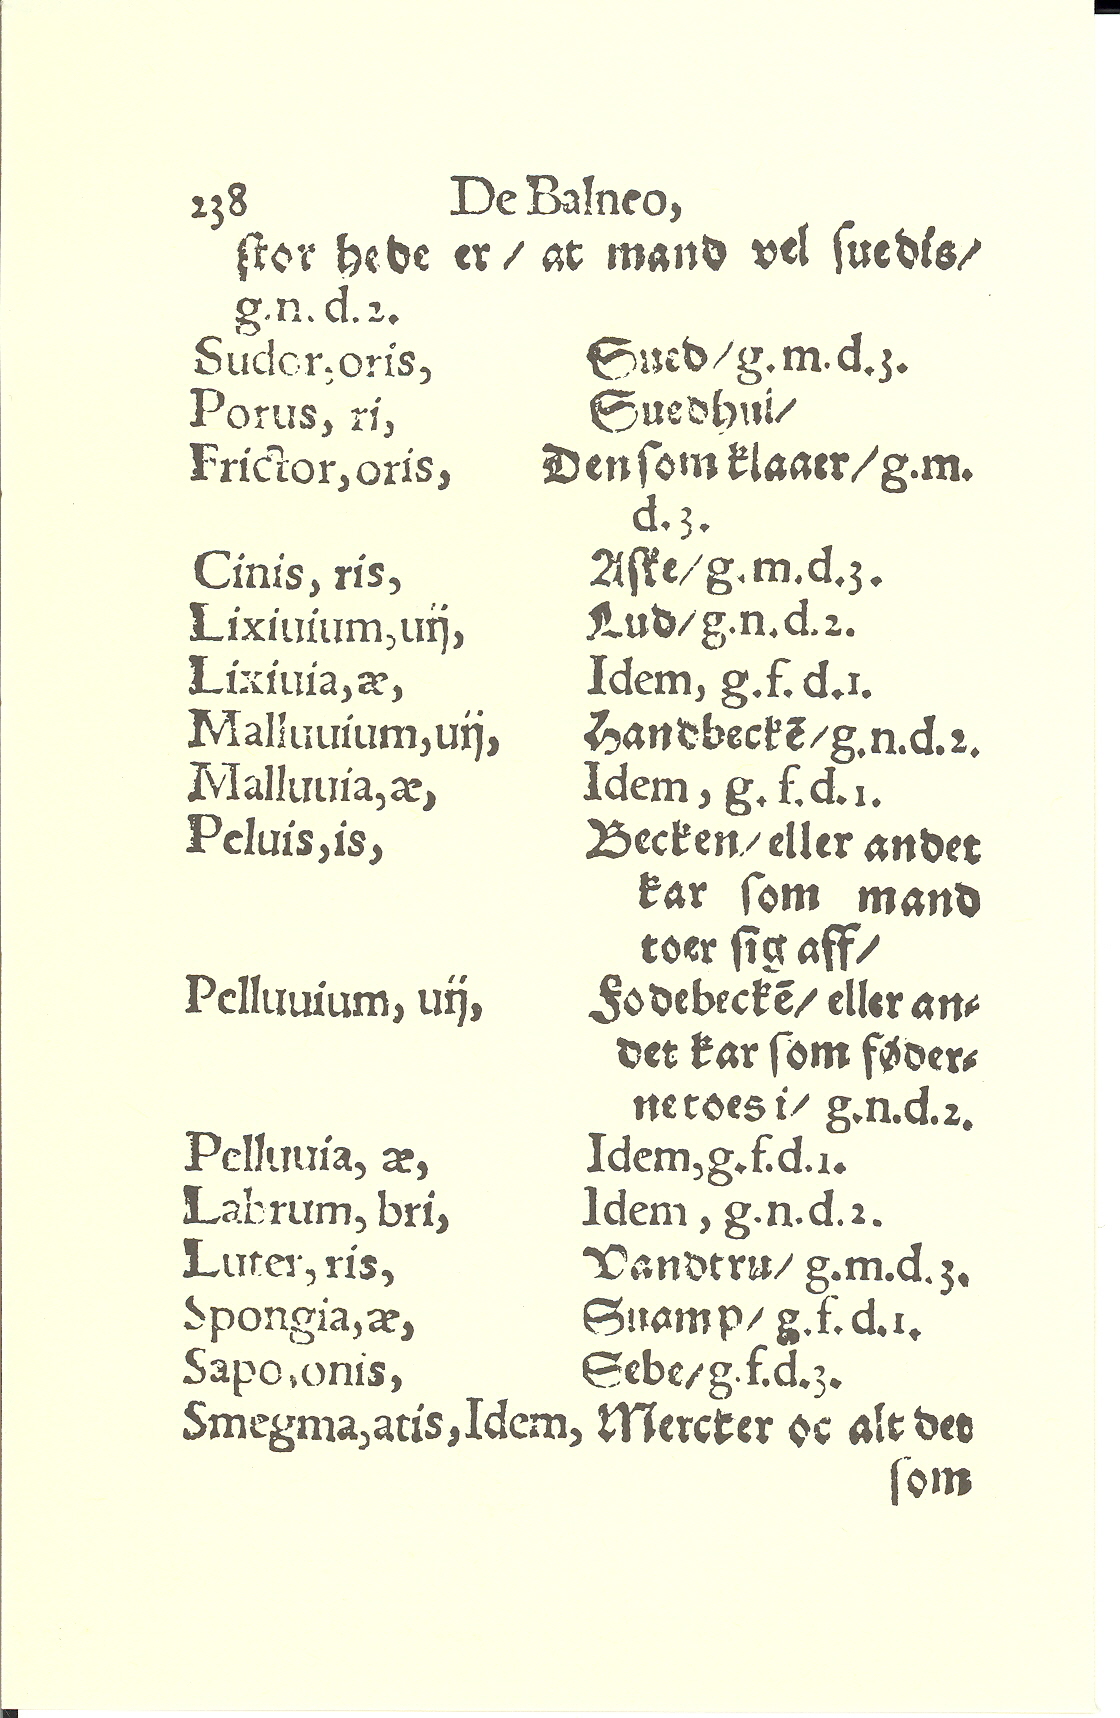 238 De Balneo,
stor hede er / at mand vel suedis/
g.n. d.2.
Sudor, oris, Sued/g.m.d.3.
Porus, ri, Suedhul/
Frictor, oris, Den som klaaer/g.m.
d.3.
Cinis, ris, Aske/g.m.d.3.
Lixiuium, uij, Lud/g.n.d.2.
Lixiuia, æ, Idem, g.f.d.1.
Malluuium, uij, Handbeckē/g.n.d.2.
Malluuia, æ, Idem, g.f.d.1.
Peluis, is, Becken/ eller andet
kar som mand
toer sig aff/
Pelluuium, uij, Fodebeckē/ eller an⸗
det kar som føder⸗
ne toes i/ g.n.d.2.
Pelluuia, æ, Idem, g.f.d.1.
Labrum, bri, Idem, g.n.d.2.
Luter, ris, Vandtru/ g.m.d.3.
Spongia, æ, Suamp/ g.f.d.1.
Sapo, onis, Sebe/g.f.d.3.
Smegma, atis, Idem, Mercker oc alt det
som